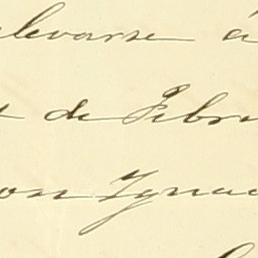 levarse á
de Febr
on Ignac